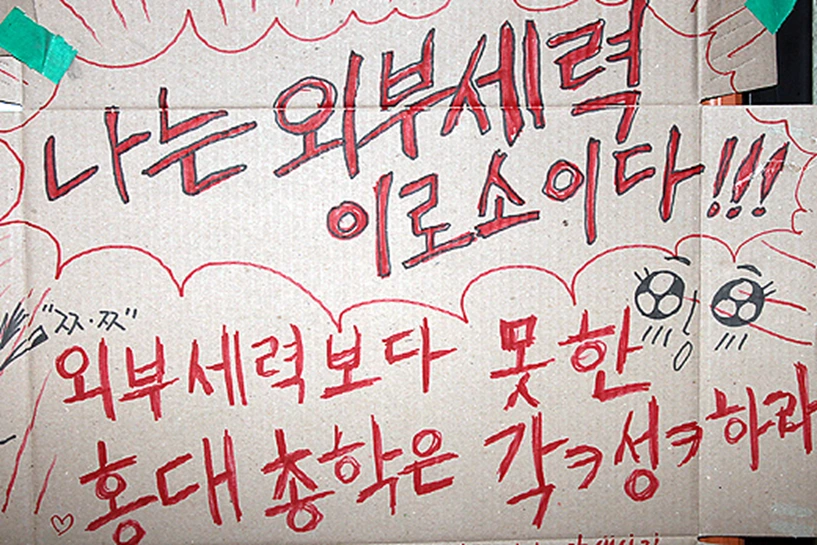 나는 외부세력
이로소이다!!!
"ㅉ.ㅉ"
외부세력보다 못한
홍대 총학은 각ㅋ성ㅋ하라